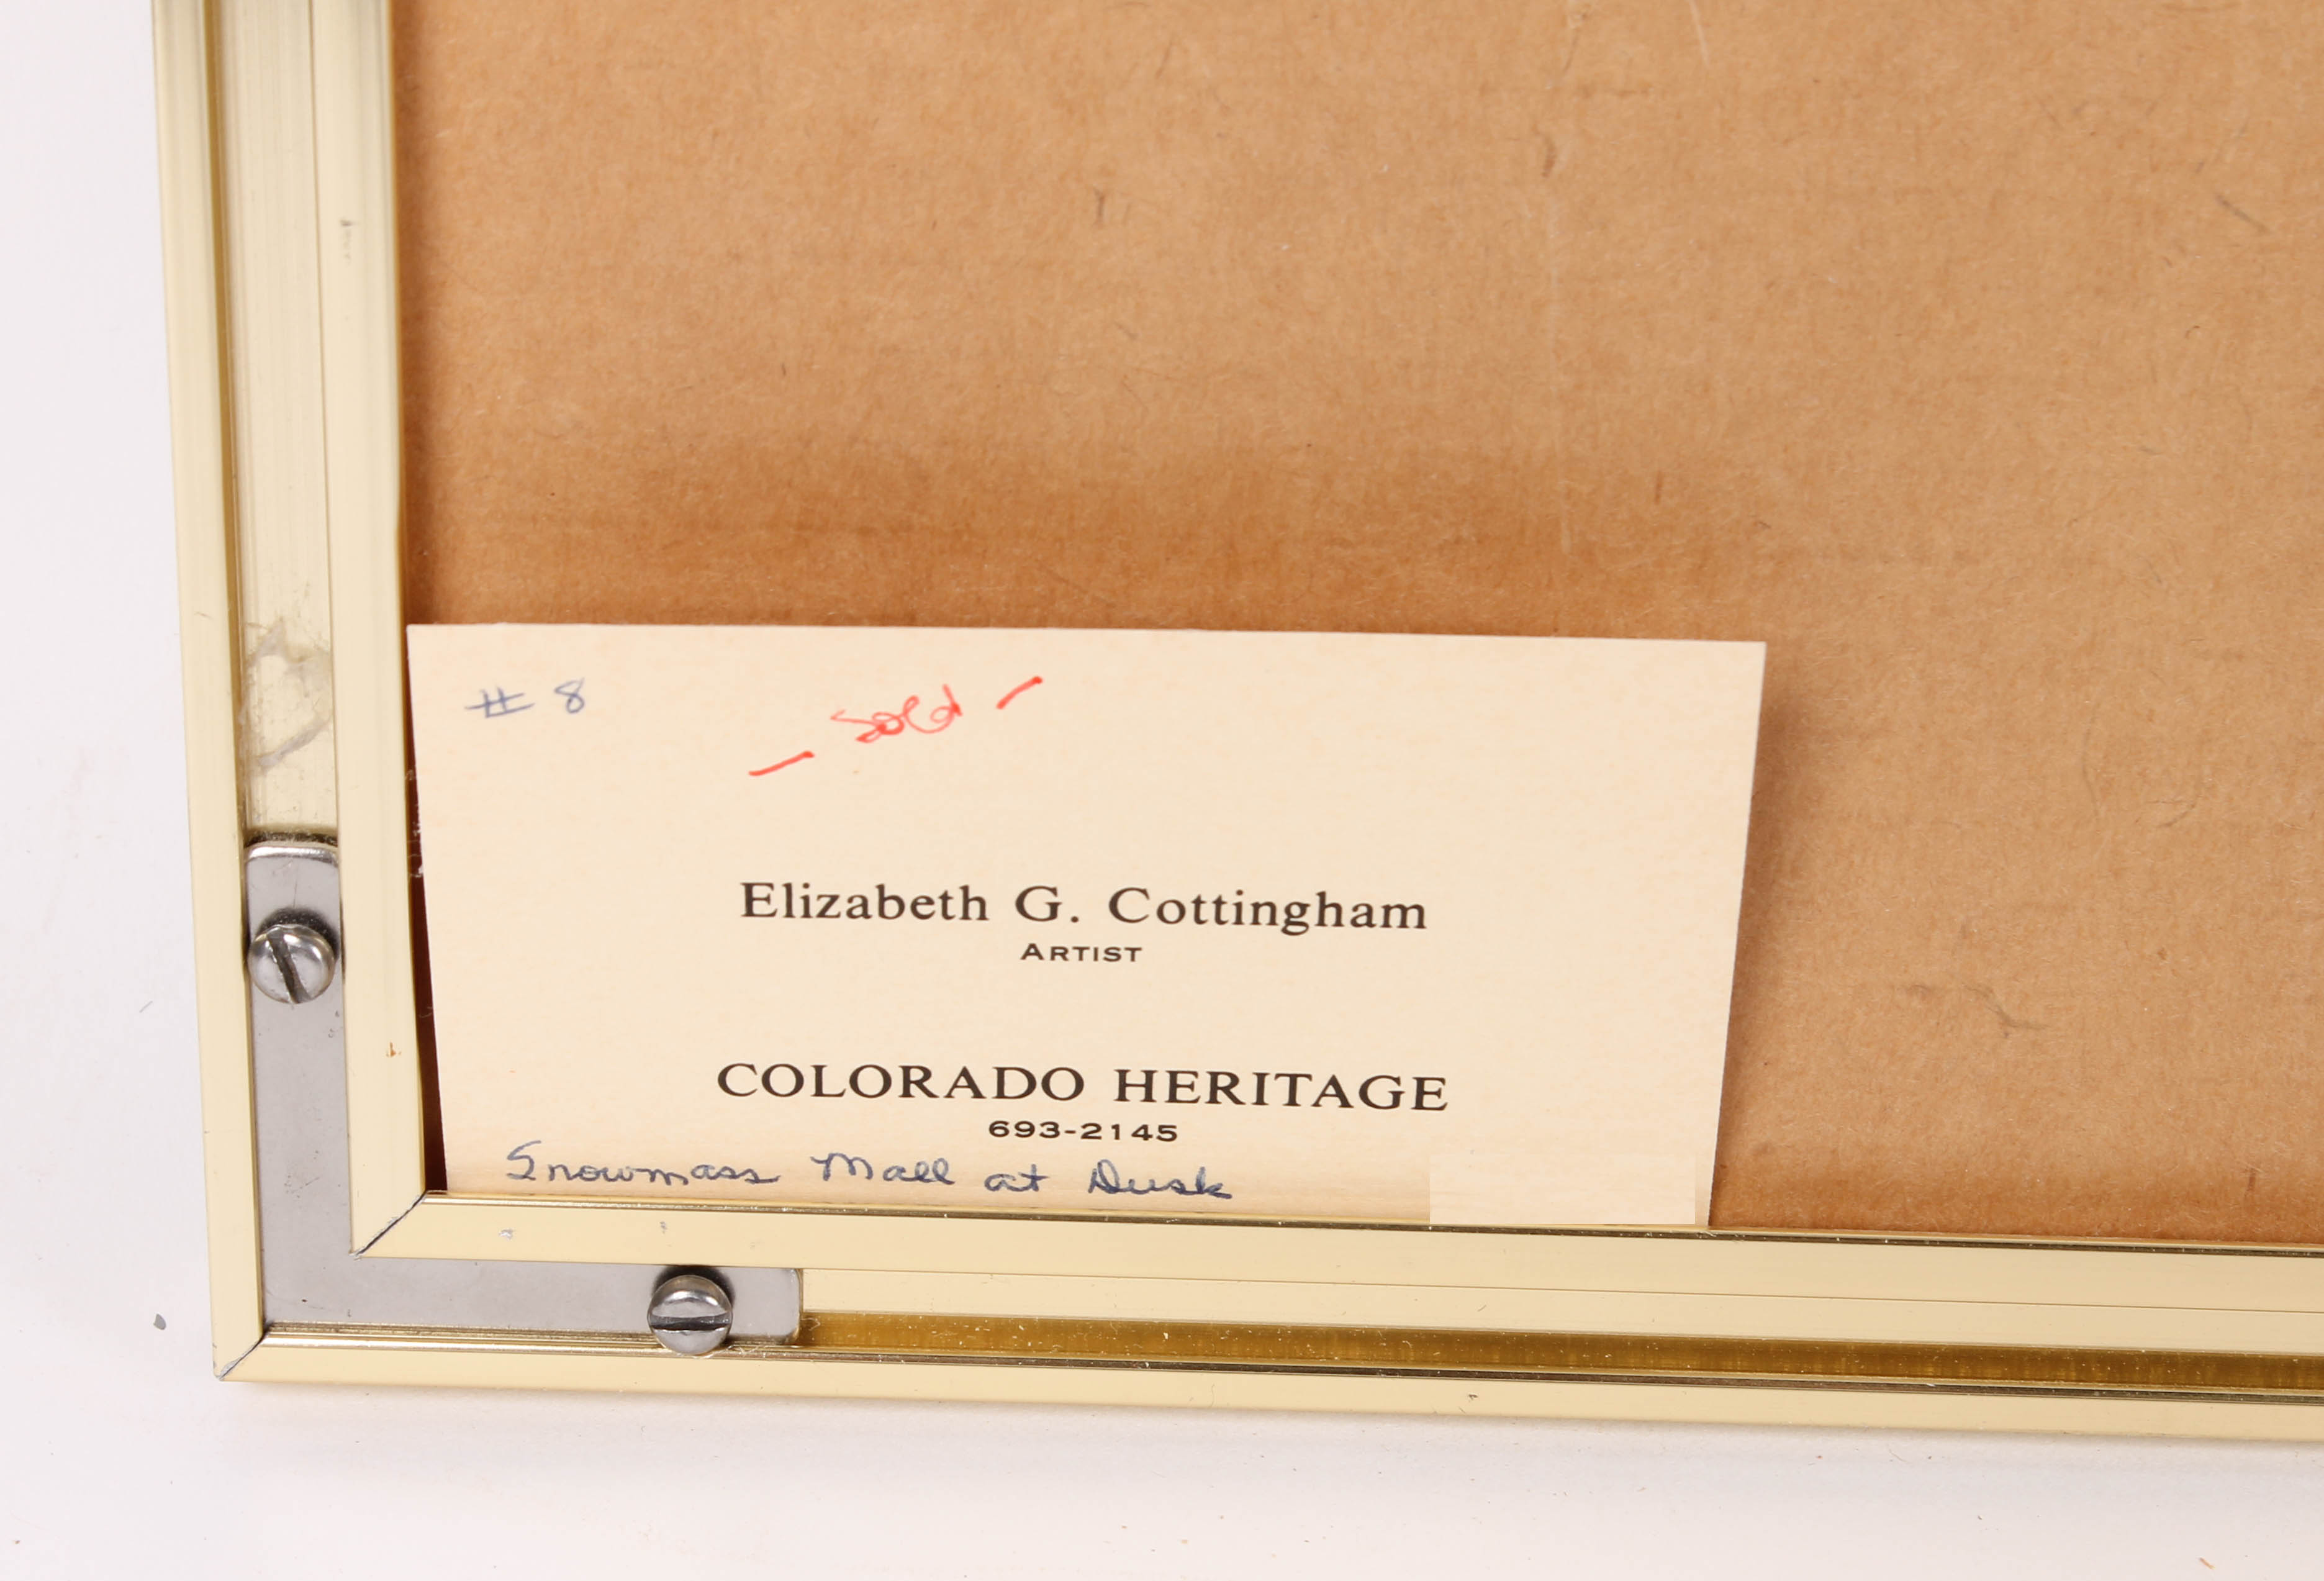 # 8
- Sold -
Elizabeth G. Cottingham
ARTIST
COLORADO HERITAGE
693-2145
Snowmass Mall at Dusk